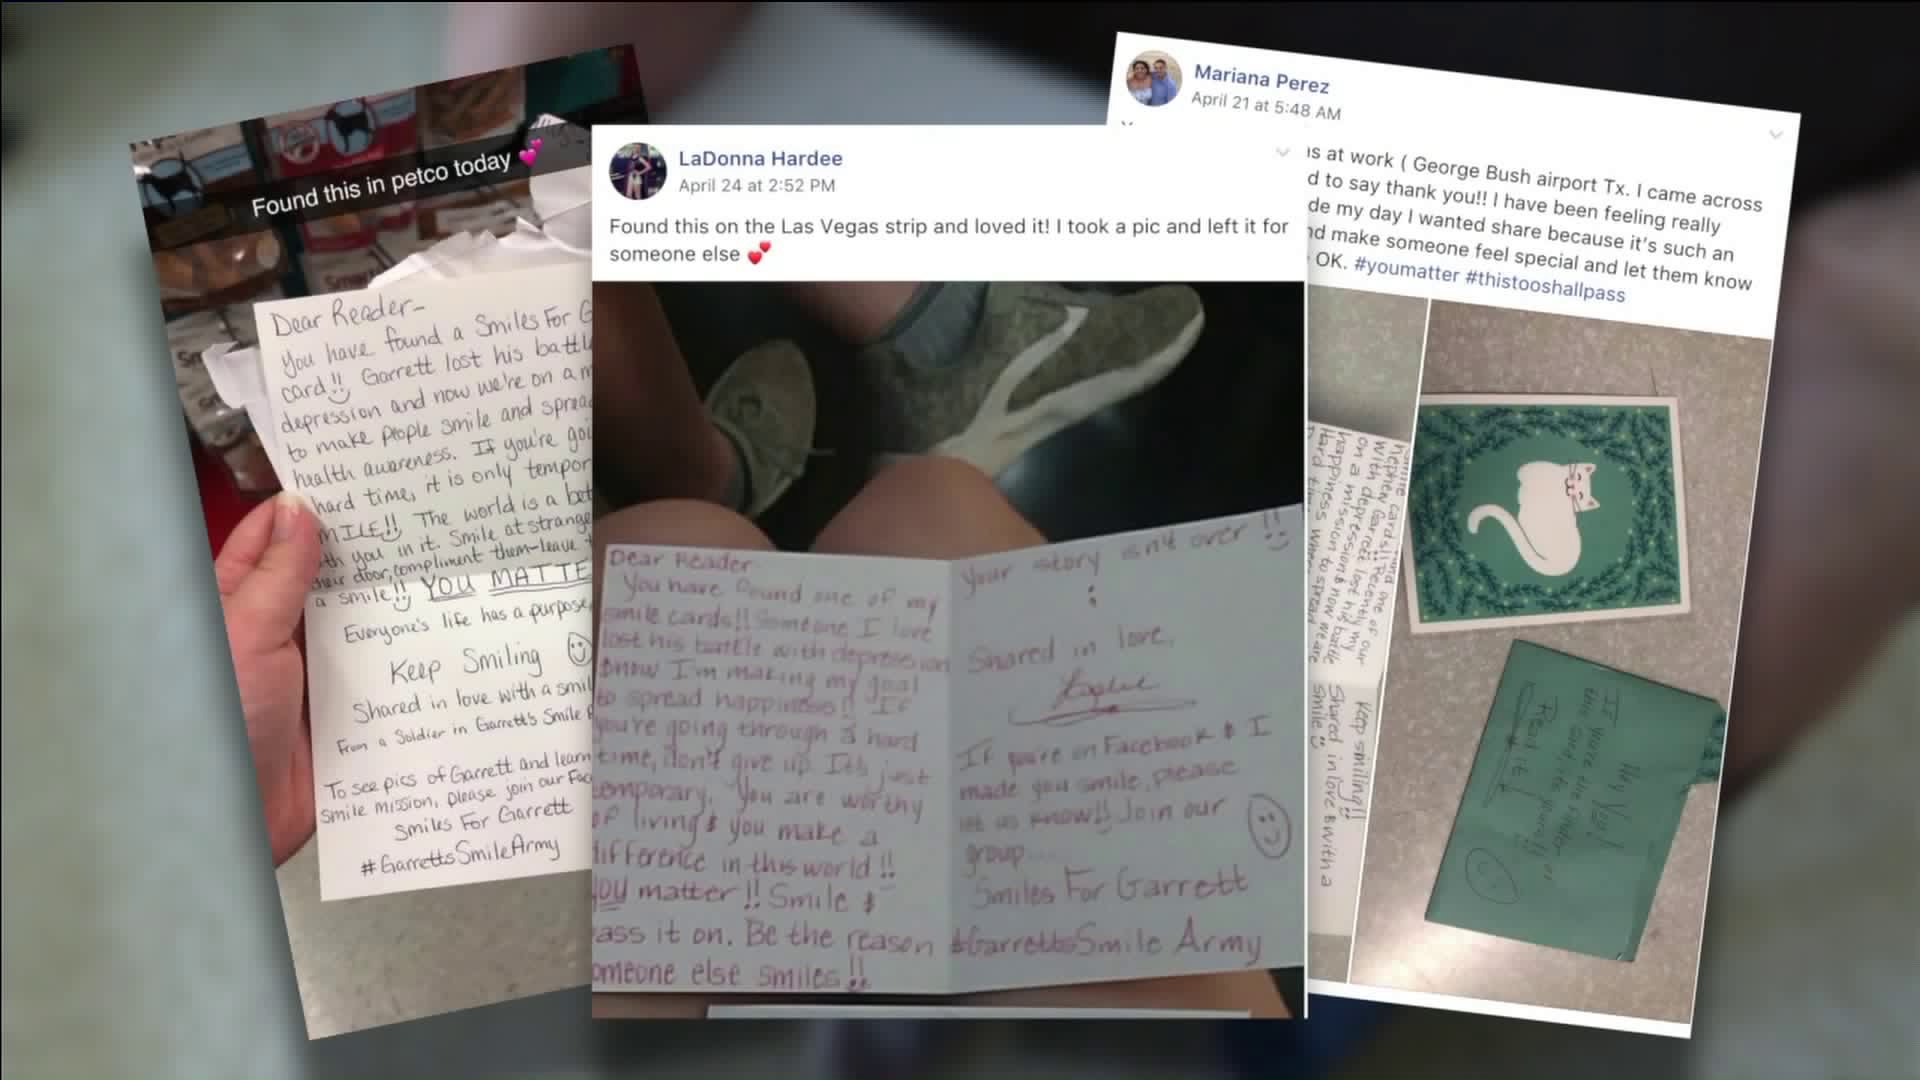 Found this in petco today 💕
Dear Reader-
You have found a Smiles For G
card!! Garrett lost his battl
depression and now we're on a m
to make people smile and sprea
health awareness. If you're goi
hard time, it is only tempor
MILE!! The world is a bet
th you in it. Smile at strange
their door, compliment them-leave
a smile!! YOU MATTE
Everyone's life has a purpose,
Keep Smiling
Shared in love with a smil
From a Soldier in Garrett's Smile
To see pics of Garrett and learn
smile mission, please join our Fac
Smiles For Garrett
#GarrettsSmileArmy
LaDonna Hardee
April 24 at 2:52 PM
Found this on the Las Vegas strip and loved it! I took a pic and left it for
someone else 💕
Dear Reader
You have found one of my
smile cards!! Someone I love
lost his battle with depression
& now I'm making my goal
to spread happiness!! If
you're going through a hard
time, don't give up. It's just
temporary. You are worthy
of living & you make a
difference in this world!!
you matter!! Smile &
ass it on. Be the reason
omeone else smiles!!
Your story isn't over!!
;
Shared in love,
If you're on Facebook & I
made you smile, please
let us know!! Join our
group....
Smiles For Garrett
#GarrettsSmileArmy
Mariana Perez
April 21 at 5:48 AM
as at work ( George Bush airport Tx. I came across
d to say thank you!! I have been feeling really
de my day I wanted share because it's such an
nd make someone feel special and let them know
OK. #youmatter #thistooshallpass
smile cards!! Recently my
nephew Garrett lost his battle
with depression & now we are
on a mission to spread
happiness. When
Hard time
Keep smiling!!
Shared in love & with a
smile
Hey You!
If you're the finder of
this card, it's yours!!
Read it!